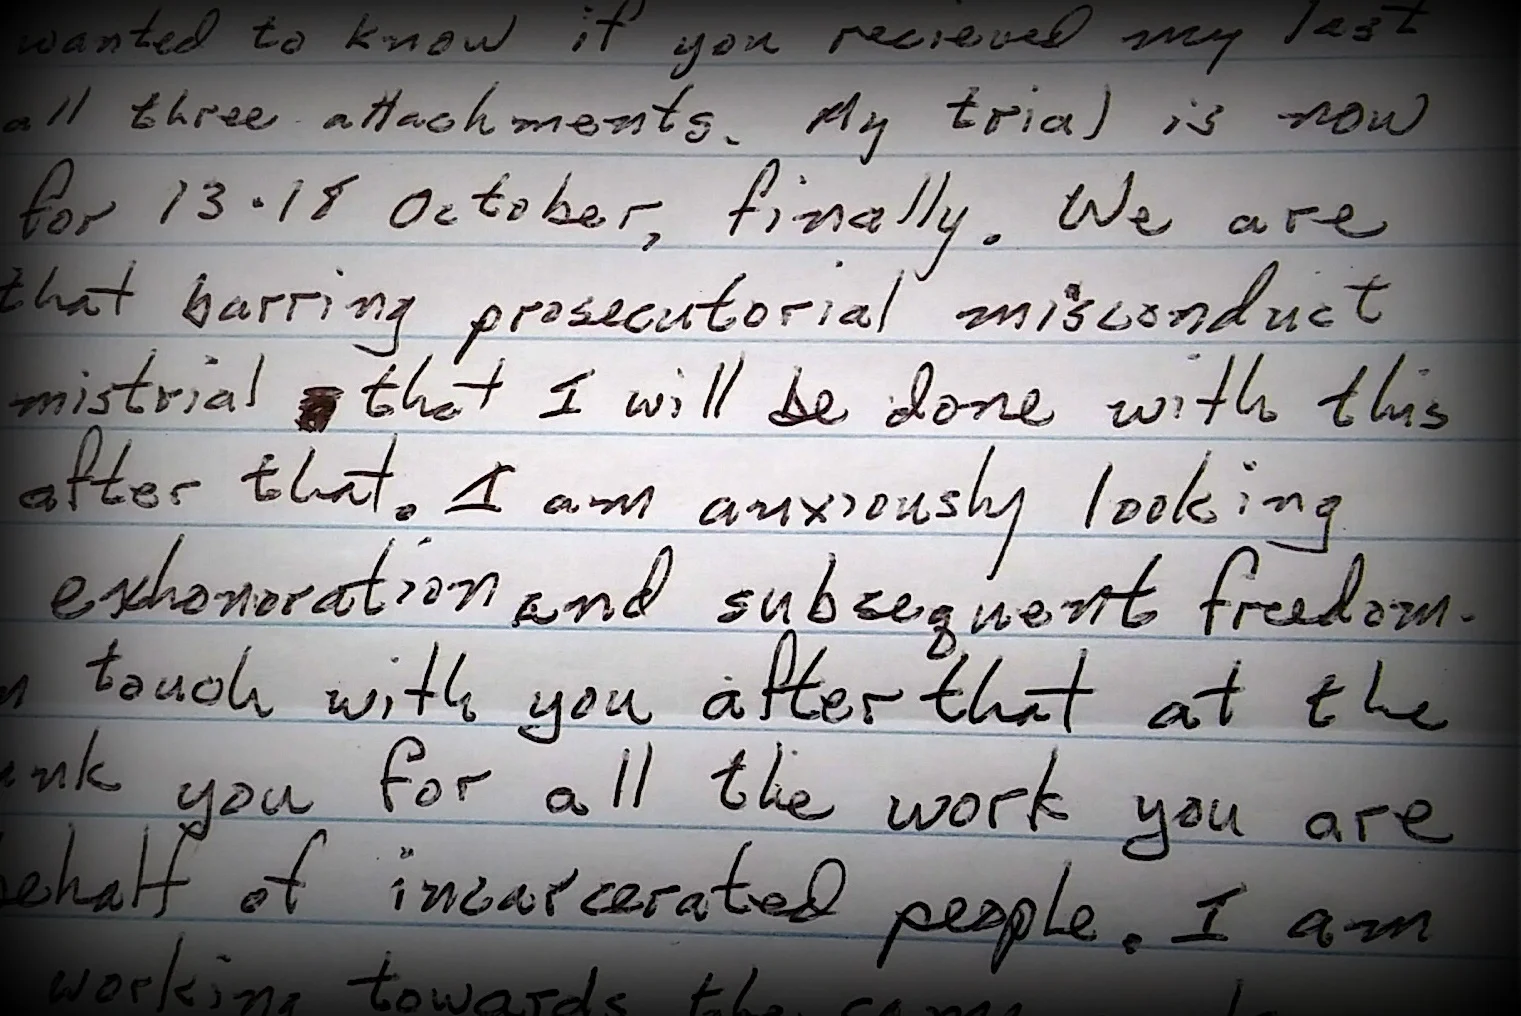 wanted to know if you recieved my last
all three attachments. My trial is now
for 13-18 October, finally. We are
that barring prosecutorial misconduct
mistrial that I will be done with this
after that. I am anxiously looking
exhonoration and subsequent freedom.
touch with you after that at the
you for all the work you are
behalf of incarcerated people. I am
working towards the